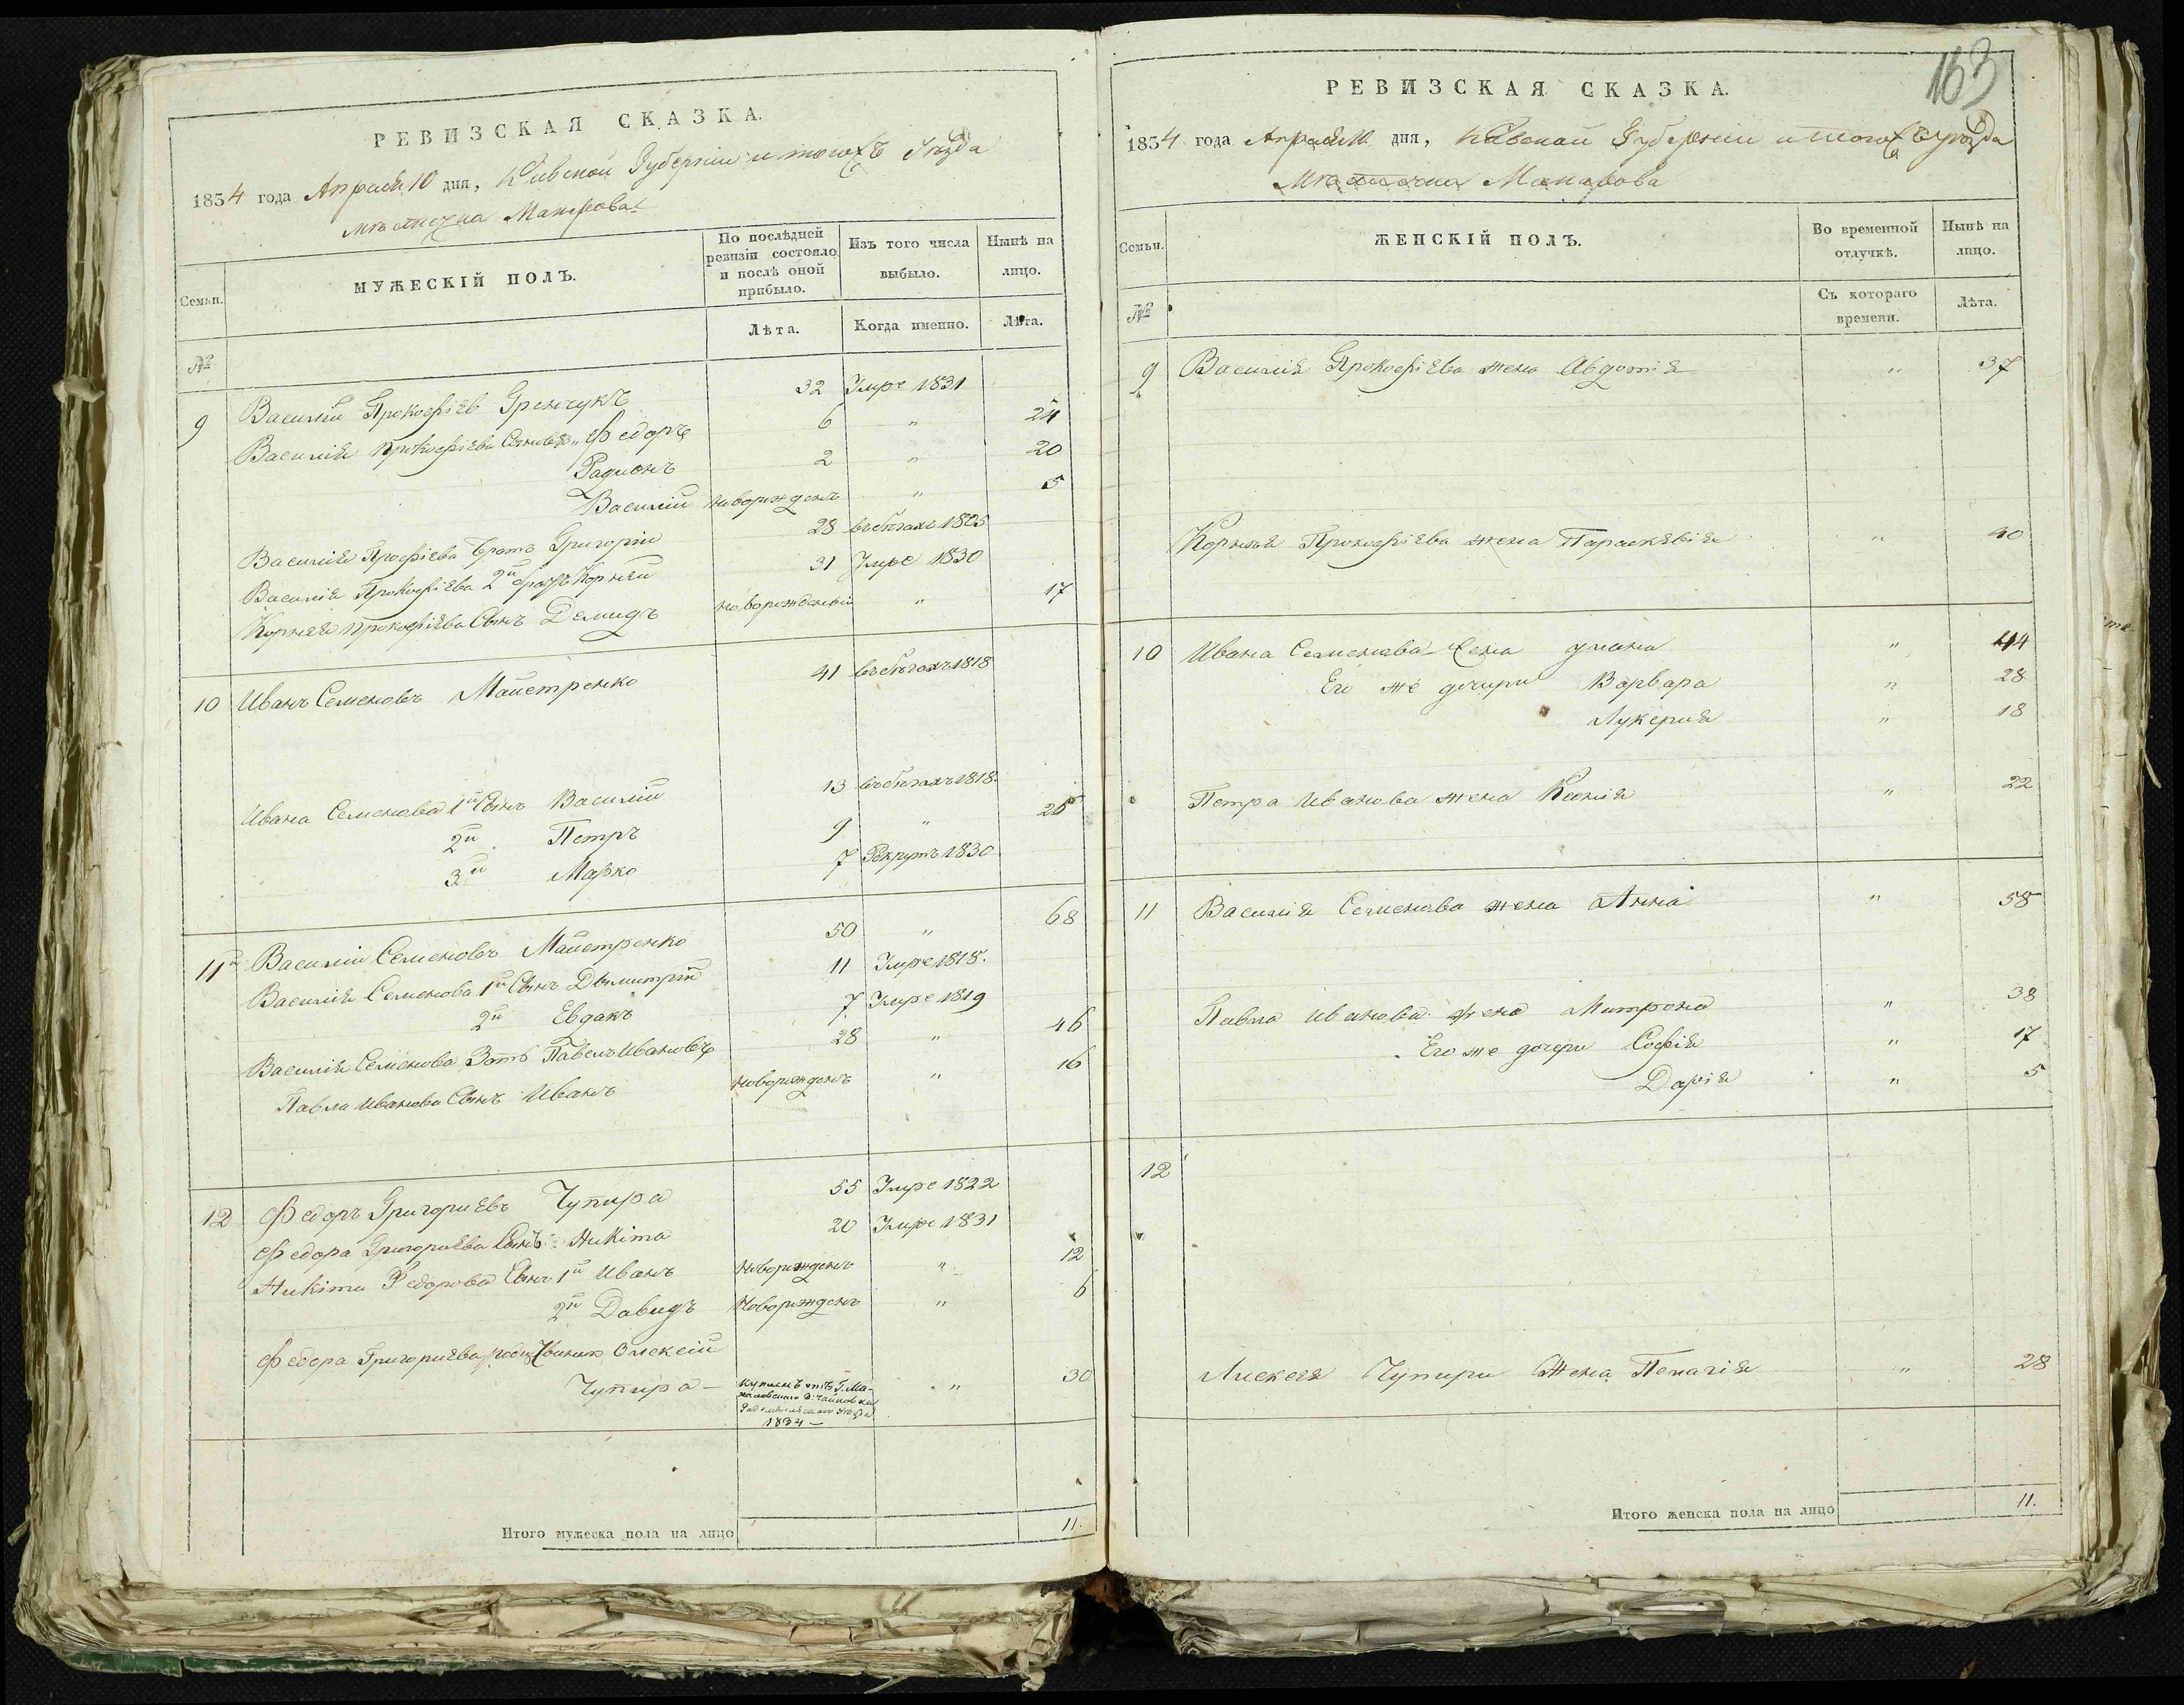 РЕВИЗСКАЯ СКАЗКА.
1834 года Апреля 10 дня, Киевской Губерніи и тогожъ Уезда
местечка Макарова
Семьи.
МУЖЕСКІЙ ПОЛЪ.
По послѣдней ревизіи состояло и послѣ оной прибыло.
Изъ того числа выбыло.
Нынѣ на лицо.
№
Лѣта.
Когда именно.
Лѣта.
9 Василій Прокофіевъ Гренчукъ 32 Умре 1831
Василія Прокофіева Сыновья Федоръ 6 " 24
Радионъ 2 " 20
Василій Новорожденъ " 5
Василія Профіева братъ Григорій 28 въ бѣгахъ 1825
Василія Прокофіева 2й братъ Корнѣй 31 Умре 1830
Корнѣя Прокофіева Сынъ Демидъ новорожденый " 17
10 Иванъ Семеновъ Майстренко 41 въ бѣгахъ 1818
Ивана Семенова 1й Сынъ Василій 13 въ бѣгахъ 1818.
2й Петръ 9 " 25
3й Марко 7 Рекрутъ 1830
11й Василій Семеновъ Майстренко 50 " 68
Василія Семенова 1й Сынъ Дымитрій 11 Умре 1818.
2й Евдакъ 7 Умре 1819
Василія Семенова Зять Павелъ Ивановъ 28 " 46
Павла Иванова Сынъ Иванъ Новорожденъ " 16
12 Федоръ Григориевъ Чупира 55 Умре 1822
Федора Григориева Сынъ Никіта 20 Умре 1831
Никіты Федорова Сынъ 1й Иванъ Новорожденъ " 12
2й Давидъ Новорожденъ " 6
Федора Григориева Олексій
Чупира - купленъ отъ Г. " 30
1834 —
Итого мужеска пола на лицо 11.
163
РЕВИЗСКАЯ СКАЗКА.
1834 года Апреля 10 дня, Киевской Губерніи и тогожъ уезда
Местечка Макарова
Семьи.
ЖЕНСКІЙ ПОЛЪ.
Во временной отлучкѣ.
Нынѣ на лицо.
№
Съ котораго времени.
Лѣта.
9 Василія Прокофіева жена Авдотія " 37
Корнѣя Прокофіева жена Параскѣвія " 40
10 Ивана Семенова Жена уляна " 44
Его же дочери Варвара " 28
Лукерия " 18
Петра Иванова жена Ксенія " 22
11 Василія Семенова жена Анна " 58
Павла Иванова жена Матрона " 38
Его же дочери Софія " 17
Дарія " 5
12
Алексея Чупиры Жена Пелагія " 28
Итого женска пола на лицо 11.